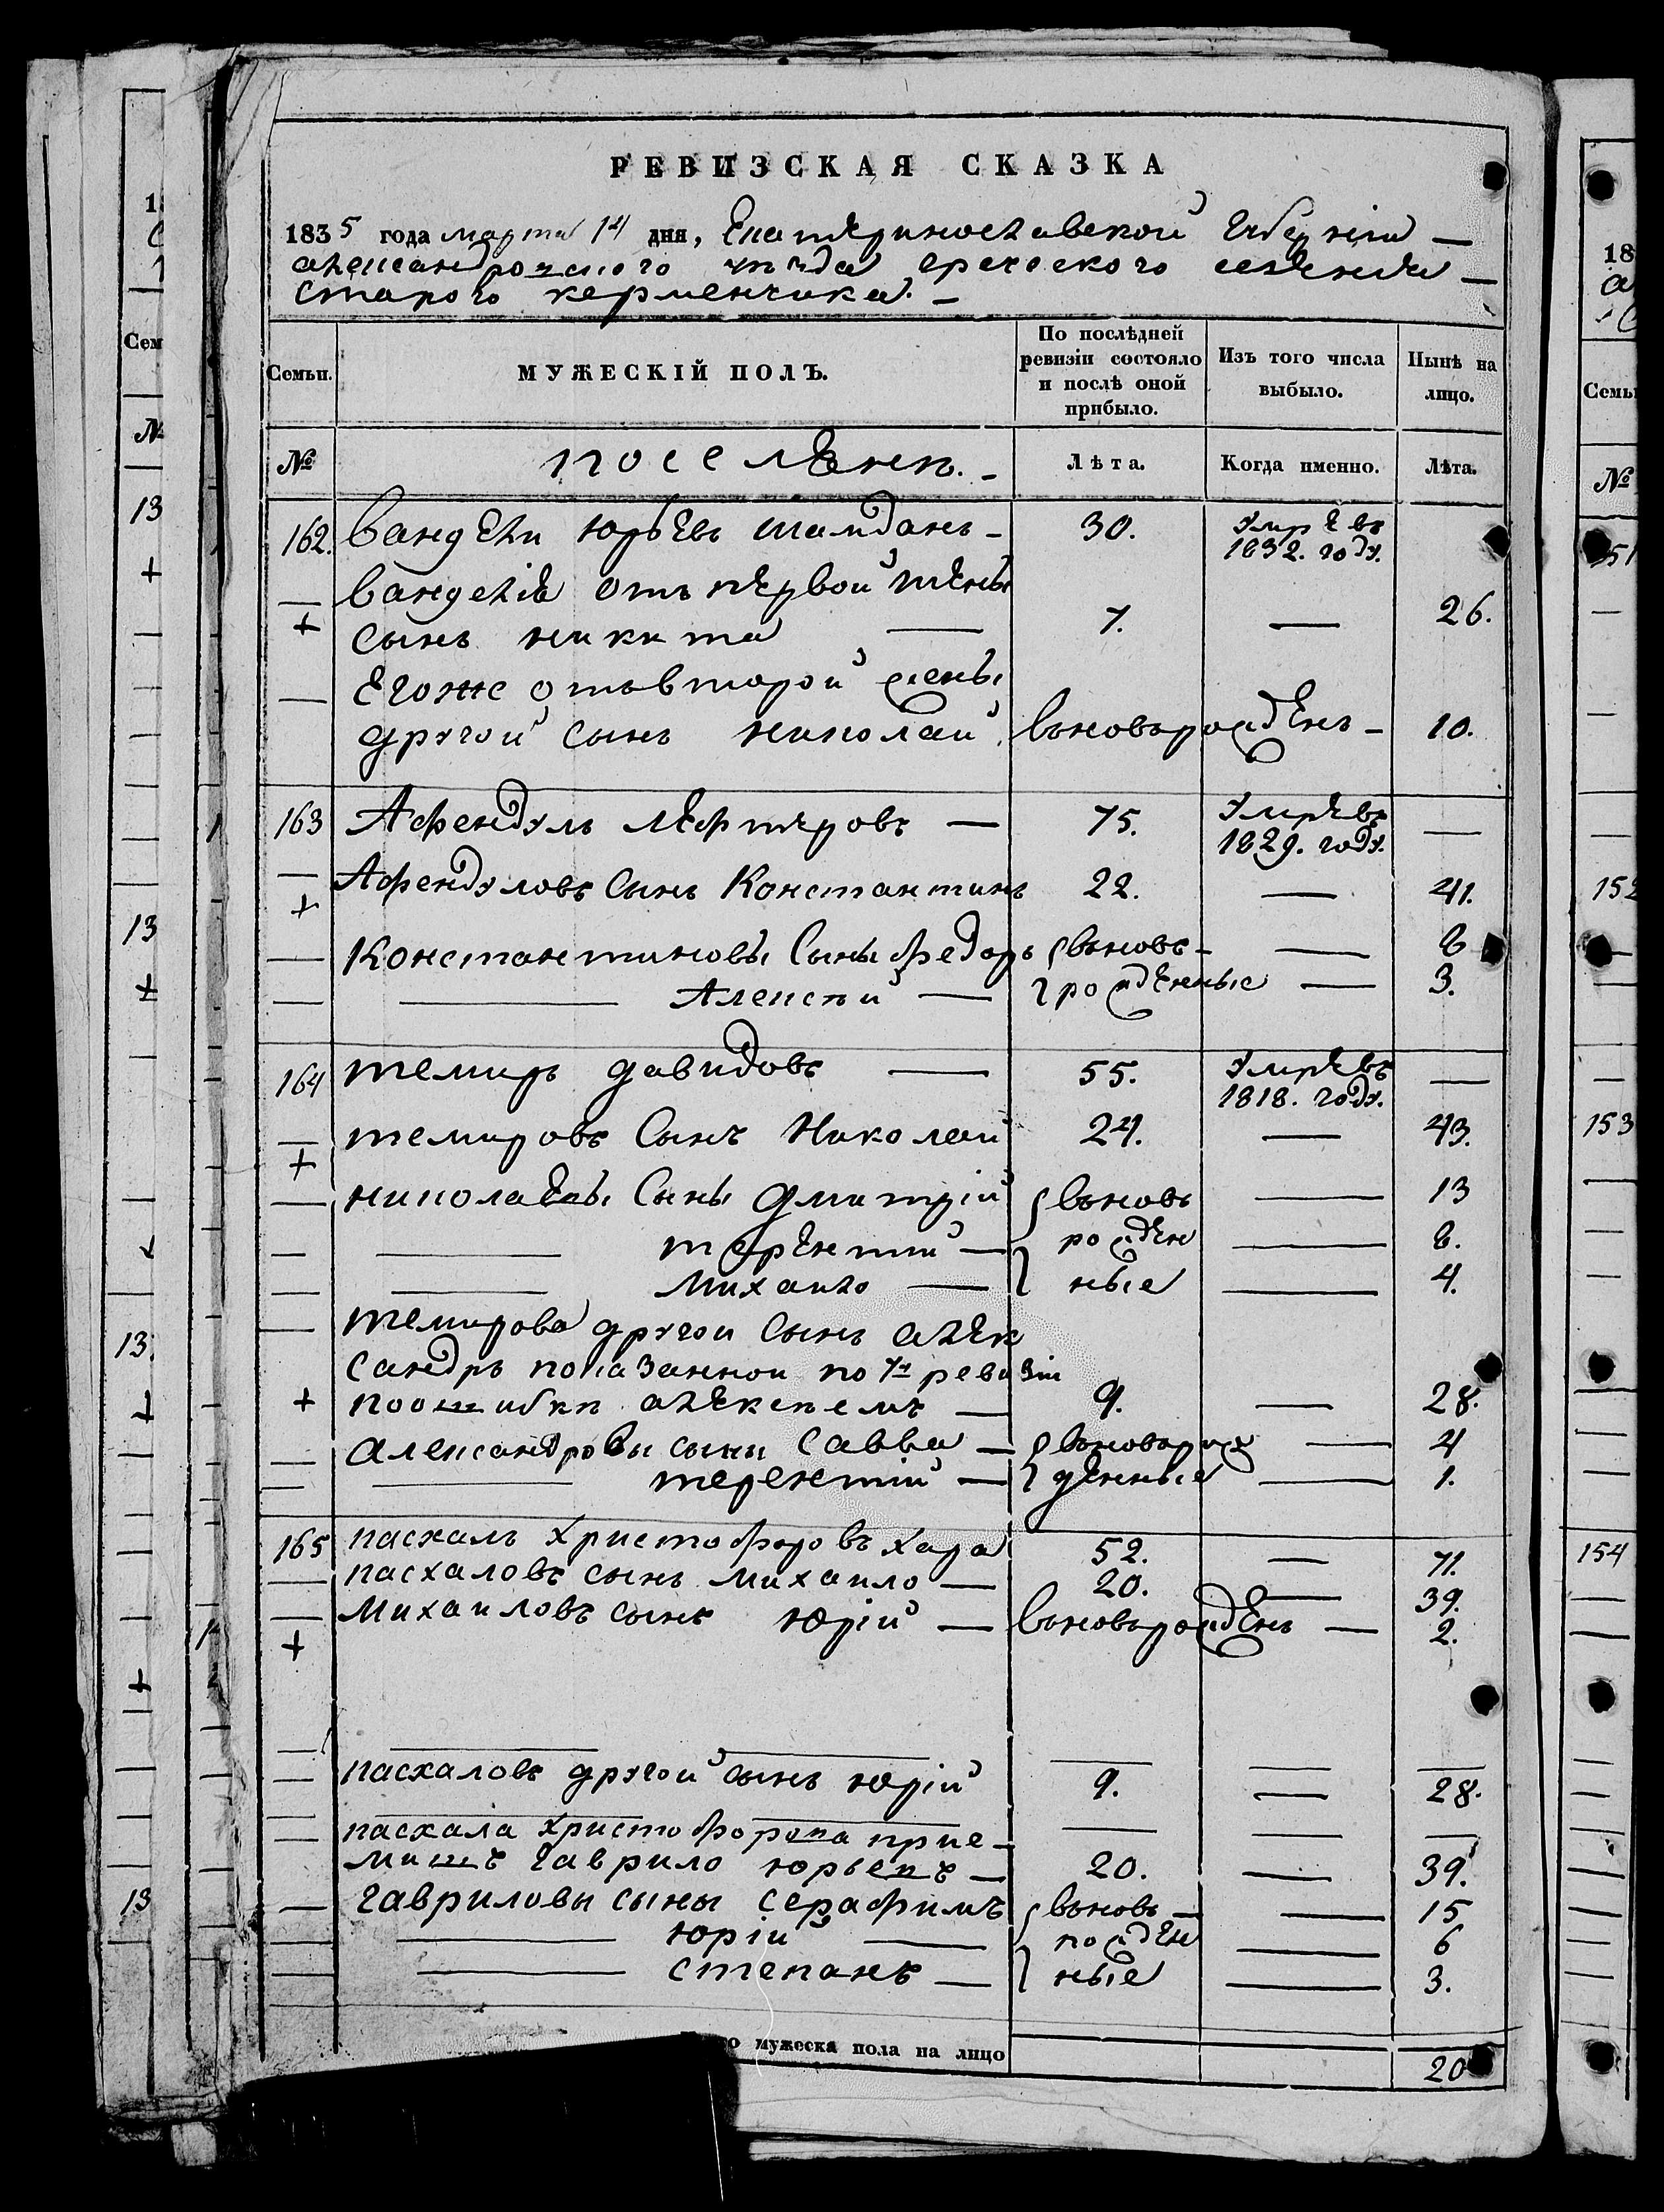 РЕВИЗСКАЯ СКАЗКА
1835 года марта 14 дня, Екатеринославской Губернiи —
александровского уѣзда греческого селенiя —
Старого керменчика. —
Семьи.
МУЖЕСКІЙ ПОЛЪ.
По послѣдней ревизіи состояло и послѣ оной прибыло.
Изъ того числа выбыло.
Нынѣ на лицо.
№
поселянъ. —
Лѣта.
Когда именно.
Лѣта.
162. Вандели юрьевъ шамданъ — 30. умре въ 1832. году.
— Ванделiя отъ первой жены
+ сынъ никита — 7. — 26.
— Егоже отъ второй жены
другой сынъ николай. вьновьрожденъ — 10.
163 Афендулъ лефтеровъ — 75. умре въ 1829. году. —
— + Афендуловъ сынъ Константинъ 22. — 41.
— Константиновы Сыны федоръ вьновь — — 8
— — Алексѣй — рожденные — 3.
164 темиръ давидовъ — 55. умре въ 1818. году. —
— + темировъ Сынъ Николай 24. — 43.
— николаевы Сыны дмитрiй вьновь — 13
— — терентий — рожден — 8.
— — михаило — ные — 4.
— темирова другои сынъ алек
сандръ показанной по 7й ревизiи
+ поошибкѣ алексѣемъ — 9. — 28.
— александровы сыны Савва — вьноворож — 4
— — терентiй — денные — 1.
165 пасхалъ христофоровъ хара 52. — 71.
— пасхаловъ сынъ михаило — 20. — 39.
— + Михаиловъ сынъ юрiй — вьновьрожденъ — 2.
— пасхаловъ другой сынъ юрiй 9. — 28.
— пасхала христофорова прие —
мишъ гаврило юрьевъ — 20. — 39.
— гавриловы сыны серафимъ вьновь — — 15
— — юрiй — рожден — 6
— — степанъ — ные — 3.
мужеска пола на лицо 20